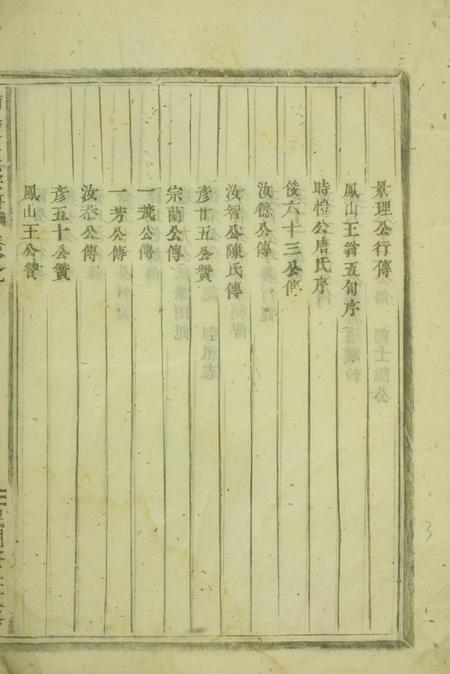 景理公行傳
鳳山王翁五旬序
時愷公唐氏序
俊六十三公傳
汝德公傳
汝智公陳氏傳
彥廿五公贊
宗蘭公傳
一武公傳
一芳公傳
汝泰公傳
彥五十公贊
鳳山王公贊
3